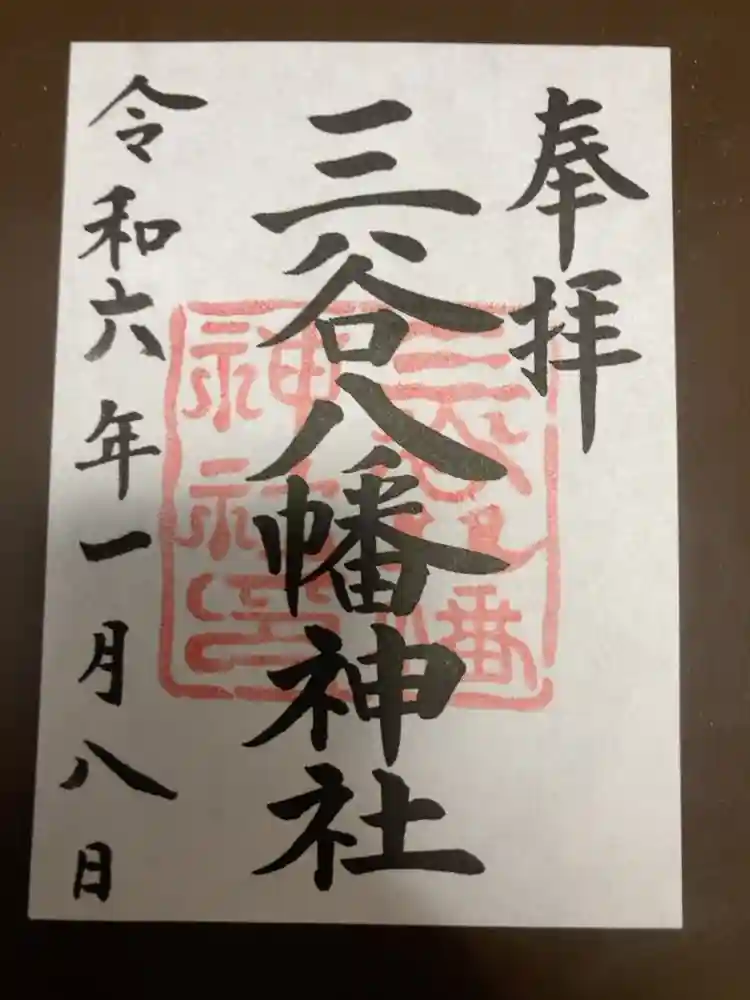 奉拝
三谷八幡神社
三谷八幡
神社之印
令和六年一月八日